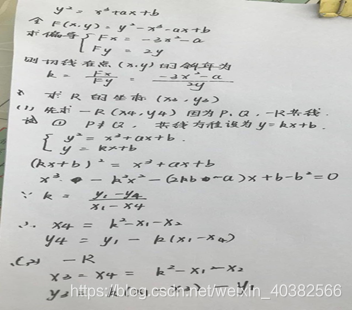 y² = x³+ax+b
令 F(x,y) = y²-x³-ax+b
求偏导 { Fx = -3x²-a
Fy = 2y
则切线在点(x,y)的斜率为
k = Fx/Fy = -3x²-a/2y
求 R 的坐标 (x3, y3)
(1) 先求 -R (x4, y4) 因为 P、Q、-R 共线
① P≠Q, 其线方程设为 y=kx+b.
{ y² = x³+ax+b.
y = kx+b
(kx+b)² = x³+ax+b
x³ - k²x² -(2kb-a)x+b-b²=0
∵ k = y1-y4/x1-x4
∴ x4 = k²-x1-x2
y4 = y1 - k(x1-x4)
(2) -R
x3 = x4 = k²-x1-x2
y3 = - y1
https://blog.csdn.net/weixin_40382566